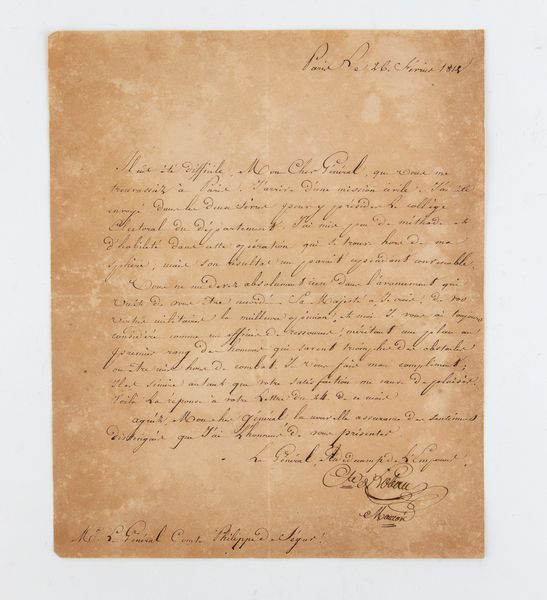 Paris le 26 Février 1812
Il eut été difficile, Mon Cher Général, que vous me
trouvassiez à Paris. J'arrive d'une mission civile. J'ai été
envoyé dans les deux Sèvres pour y présider le collège
Electoral du département. J'ai mis peu de méthode et
d'habileté dans cette opération qui se trouve hors de ma
sphère; mais son résultat me paroit cependant convenable.
Vous ne me devez absolument rien dans l'avancement qui
vient de vous être accordé. Sa Majesté a, je crois, de vos
vertus militaires la meilleure opinion, et moi je vous ai toujours
considéré comme un officier de ressource, méritant une place au
premier rang des hommes qui savent triompher des obstacles
ou être mis hors de combat. Je vous fais mon compliment;
il est sincère autant que votre satisfaction me cause de plaisir.
Voilà la réponse à votre Lettre du 24 de ce mois
agréez, Mon cher Général la nouvelle assurance des sentimens
distingués que J'ai l'honneur de vous présenter
Le Général, Aide de camp de L'Empereur
Cte de Lobau
Mouton
Mr Le Général Comte Philippe de Ségur.